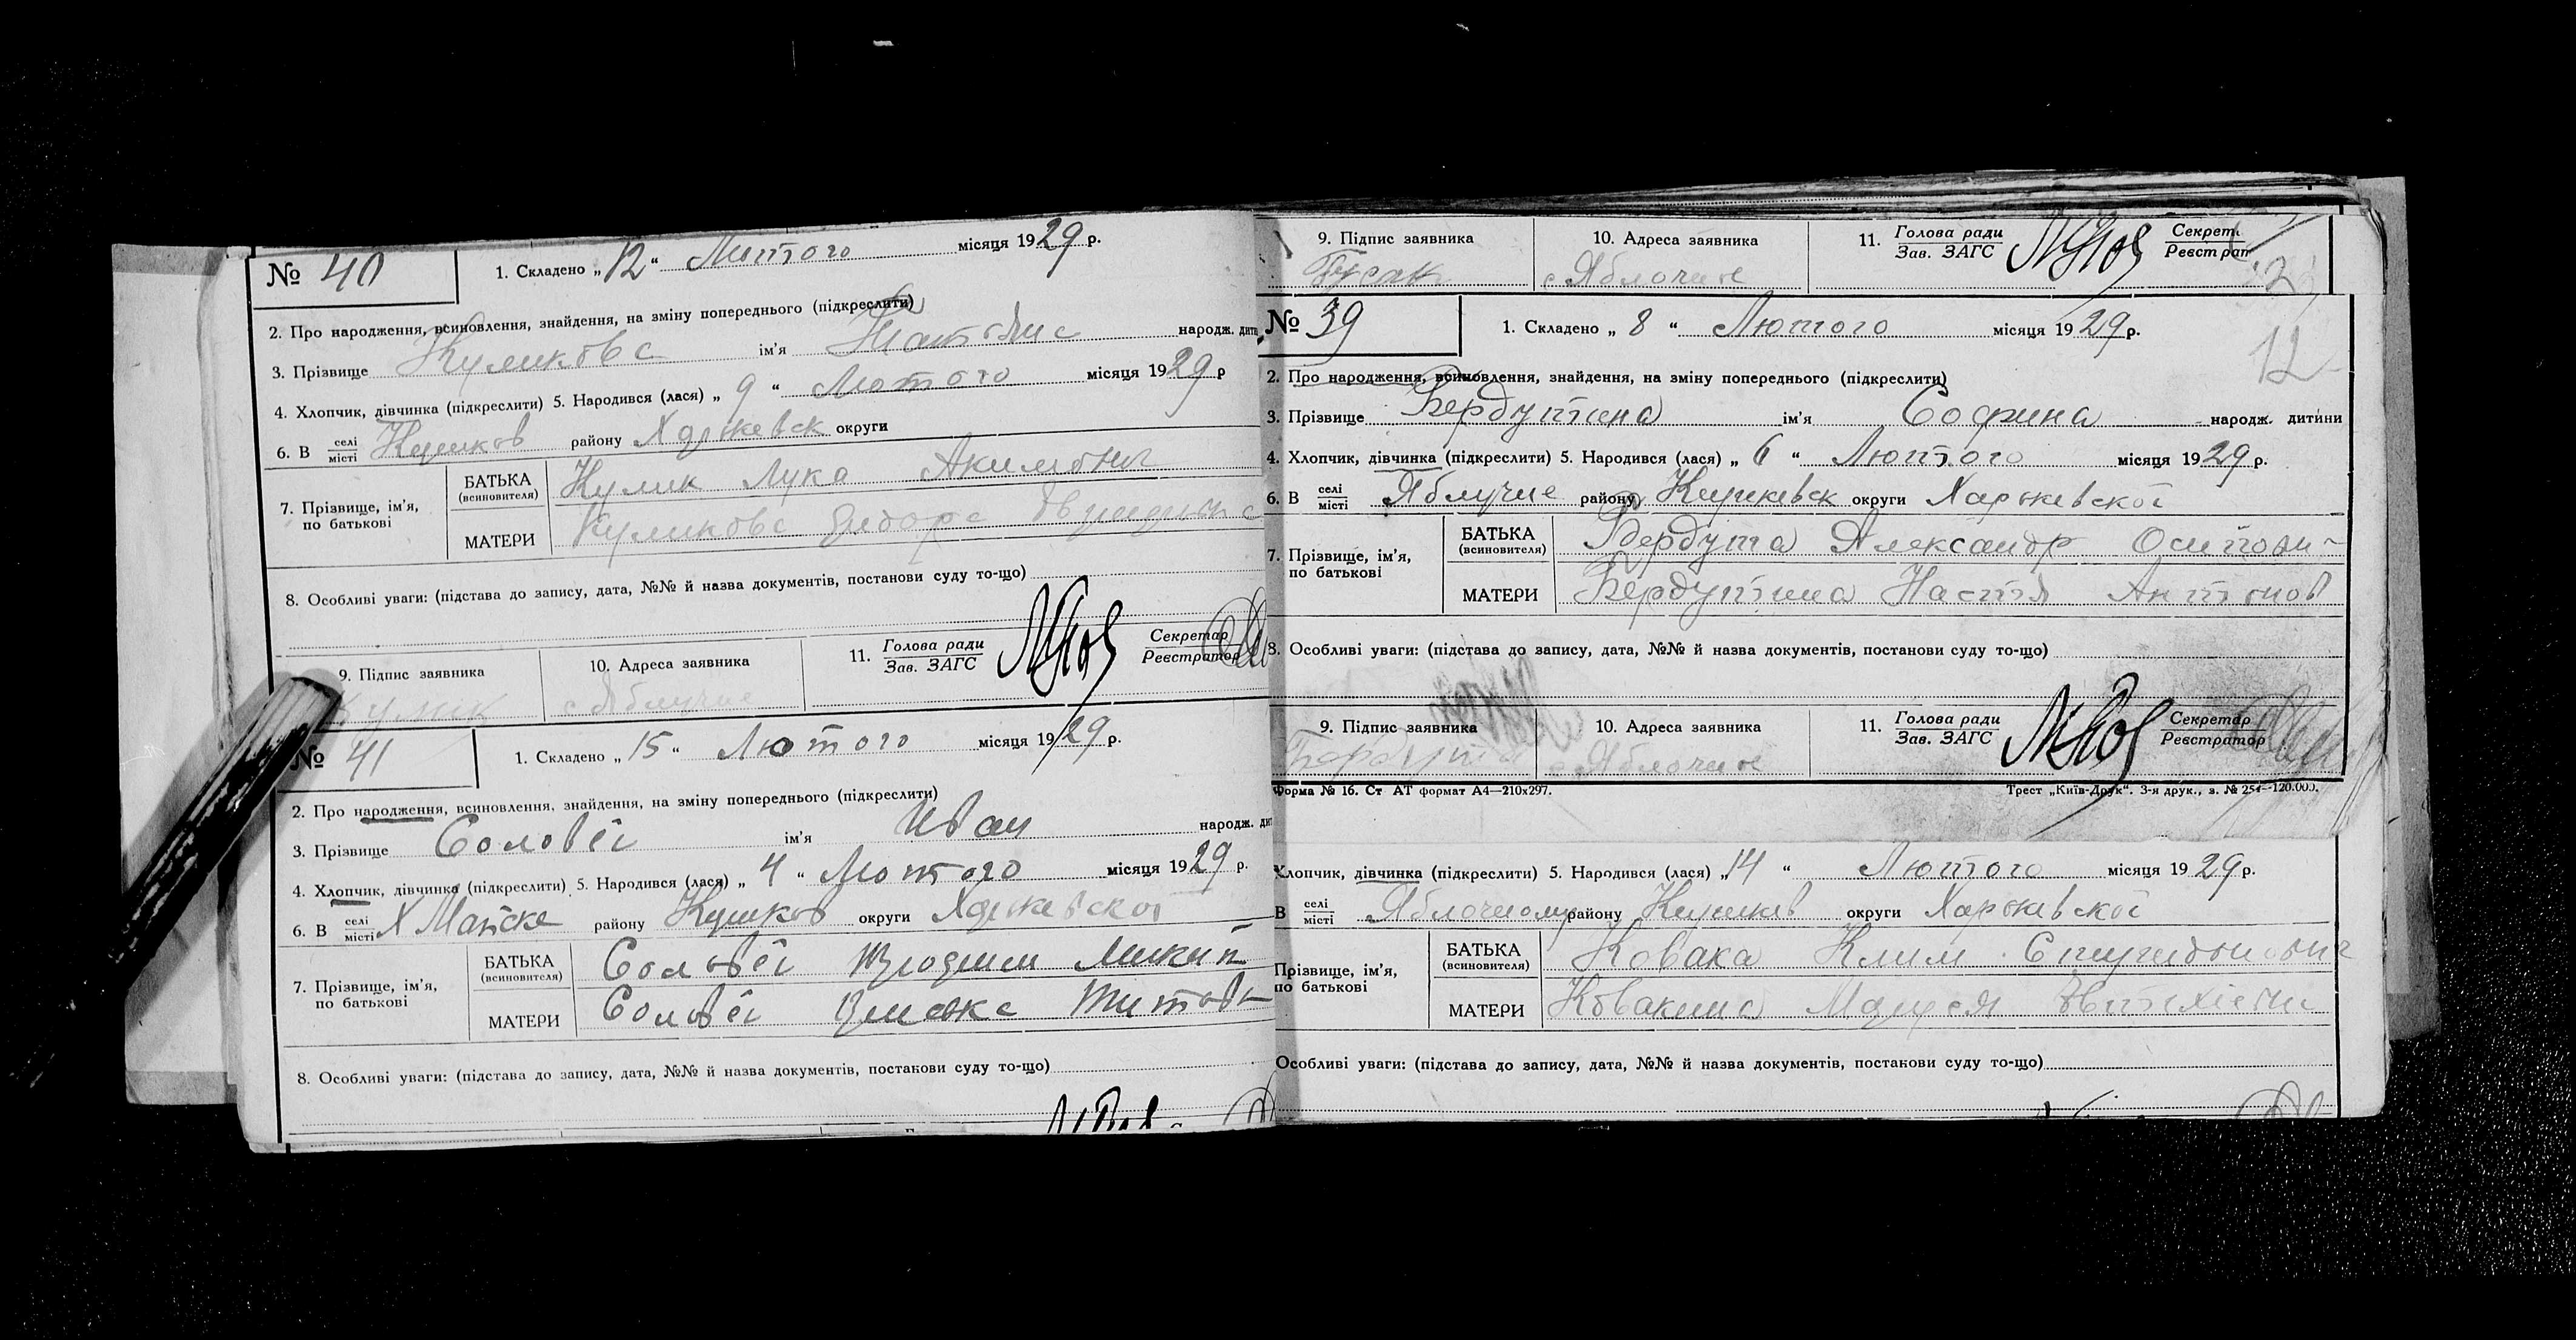 № 40
1. Складено „ 12 “ Лютого місяця 1929 р.
2. Про народження, всиновлення, знайдення, на зміну попереднього (підкреслити)
3. Прізвище Куликова ім'я народж. дити
4. Хлопчик, дівчинка (підкреслити) 5. Народився (лася) „ 9 “ Лютого місяця 1929 р
6. В селі місті району округи
7. Прізвище, ім'я, по батькові
БАТЬКА (всиновителя) Кулик Лука Акимович
МАТЕРИ Куликова
8. Особливі уваги: (підстава до запису, дата, №№ й назва документів, постанови суду то-що)
9. Підпис заявника 10. Адреса заявника 11. Голова ради Зав. ЗАГС Секретар Реєстратор
Кулик с Яблучне
№ 41
1. Складено „ 15 “ Лютого місяця 1929 р.
2. Про народження, всиновлення, знайдення, на зміну попереднього (підкреслити)
3. Прізвище Соловеї ім'я Иван народж. ди
4. Хлопчик, дівчинка (підкреслити) 5. Народився (лася) „ 4 “ Лютого місяця 1929 р.
6. В селі місті Х району округи
7. Прізвище, ім'я, по батькові
БАТЬКА (всиновителя) Соловеї
МАТЕРИ Соловеї
8. Особливі уваги: (підстава до запису, дата, №№ й назва документів, постанови суду то-що)
9. Підпис заявника 10. Адреса заявника 11. Голова ради Зав. ЗАГС Секрет Реєстрат
Гусак с Яблочне
№ 39
1. Складено „ 8 “ Лютого місяця 1929 р.
12
2. Про народження, всиновлення, знайдення, на зміну попереднього (підкреслити)
3. Прізвище Бердутина ім'я Софина народж. дитини
4. Хлопчик, дівчинка (підкреслити) 5. Народився (лася) „ 6 “ Лютого місяця 1929 р.
6. В селі місті Яблучне району округи Харькевскої
7. Прізвище, ім'я, по батькові
БАТЬКА (всиновителя) Бердута Александр Осипови
МАТЕРИ Бердутина Настя Антонов
8. Особливі уваги: (підстава до запису, дата, №№ й назва документів, постанови суду то-що)
9. Підпис заявника 10. Адреса заявника 11. Голова ради Зав. ЗАГС Секретар Реєстратор
Бердута с Яблочне
Форма № 16. Ст АТ формат А4—210х297. Трест „Київ-Друк“. 3-я друк., з. № 254—120.000.
Хлопчик, дівчинка (підкреслити) 5. Народився (лася) „ 14 “ Лютого місяця 1929 р.
В селі місті Яблочному району округи Харькевскої
Прізвище, ім'я, по батькові
БАТЬКА (всиновителя) Ковака Клим
МАТЕРИ Ковакина
Особливі уваги: (підстава до запису, дата, №№ й назва документів, постанови суду то-що)